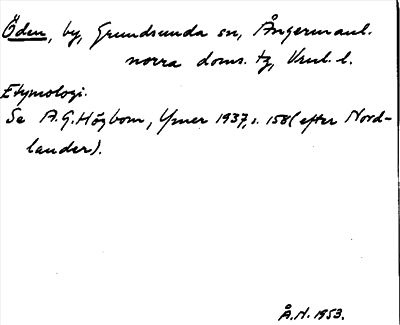 Öden, by, Grundsunda sn, Ångermanl.
norra doms. tg, Vnrl. l.
Etymologi.
Se A.G. Högbom, Ymer 1937, s. 158 (efter Nord-
lander).
Å.N. 1953.